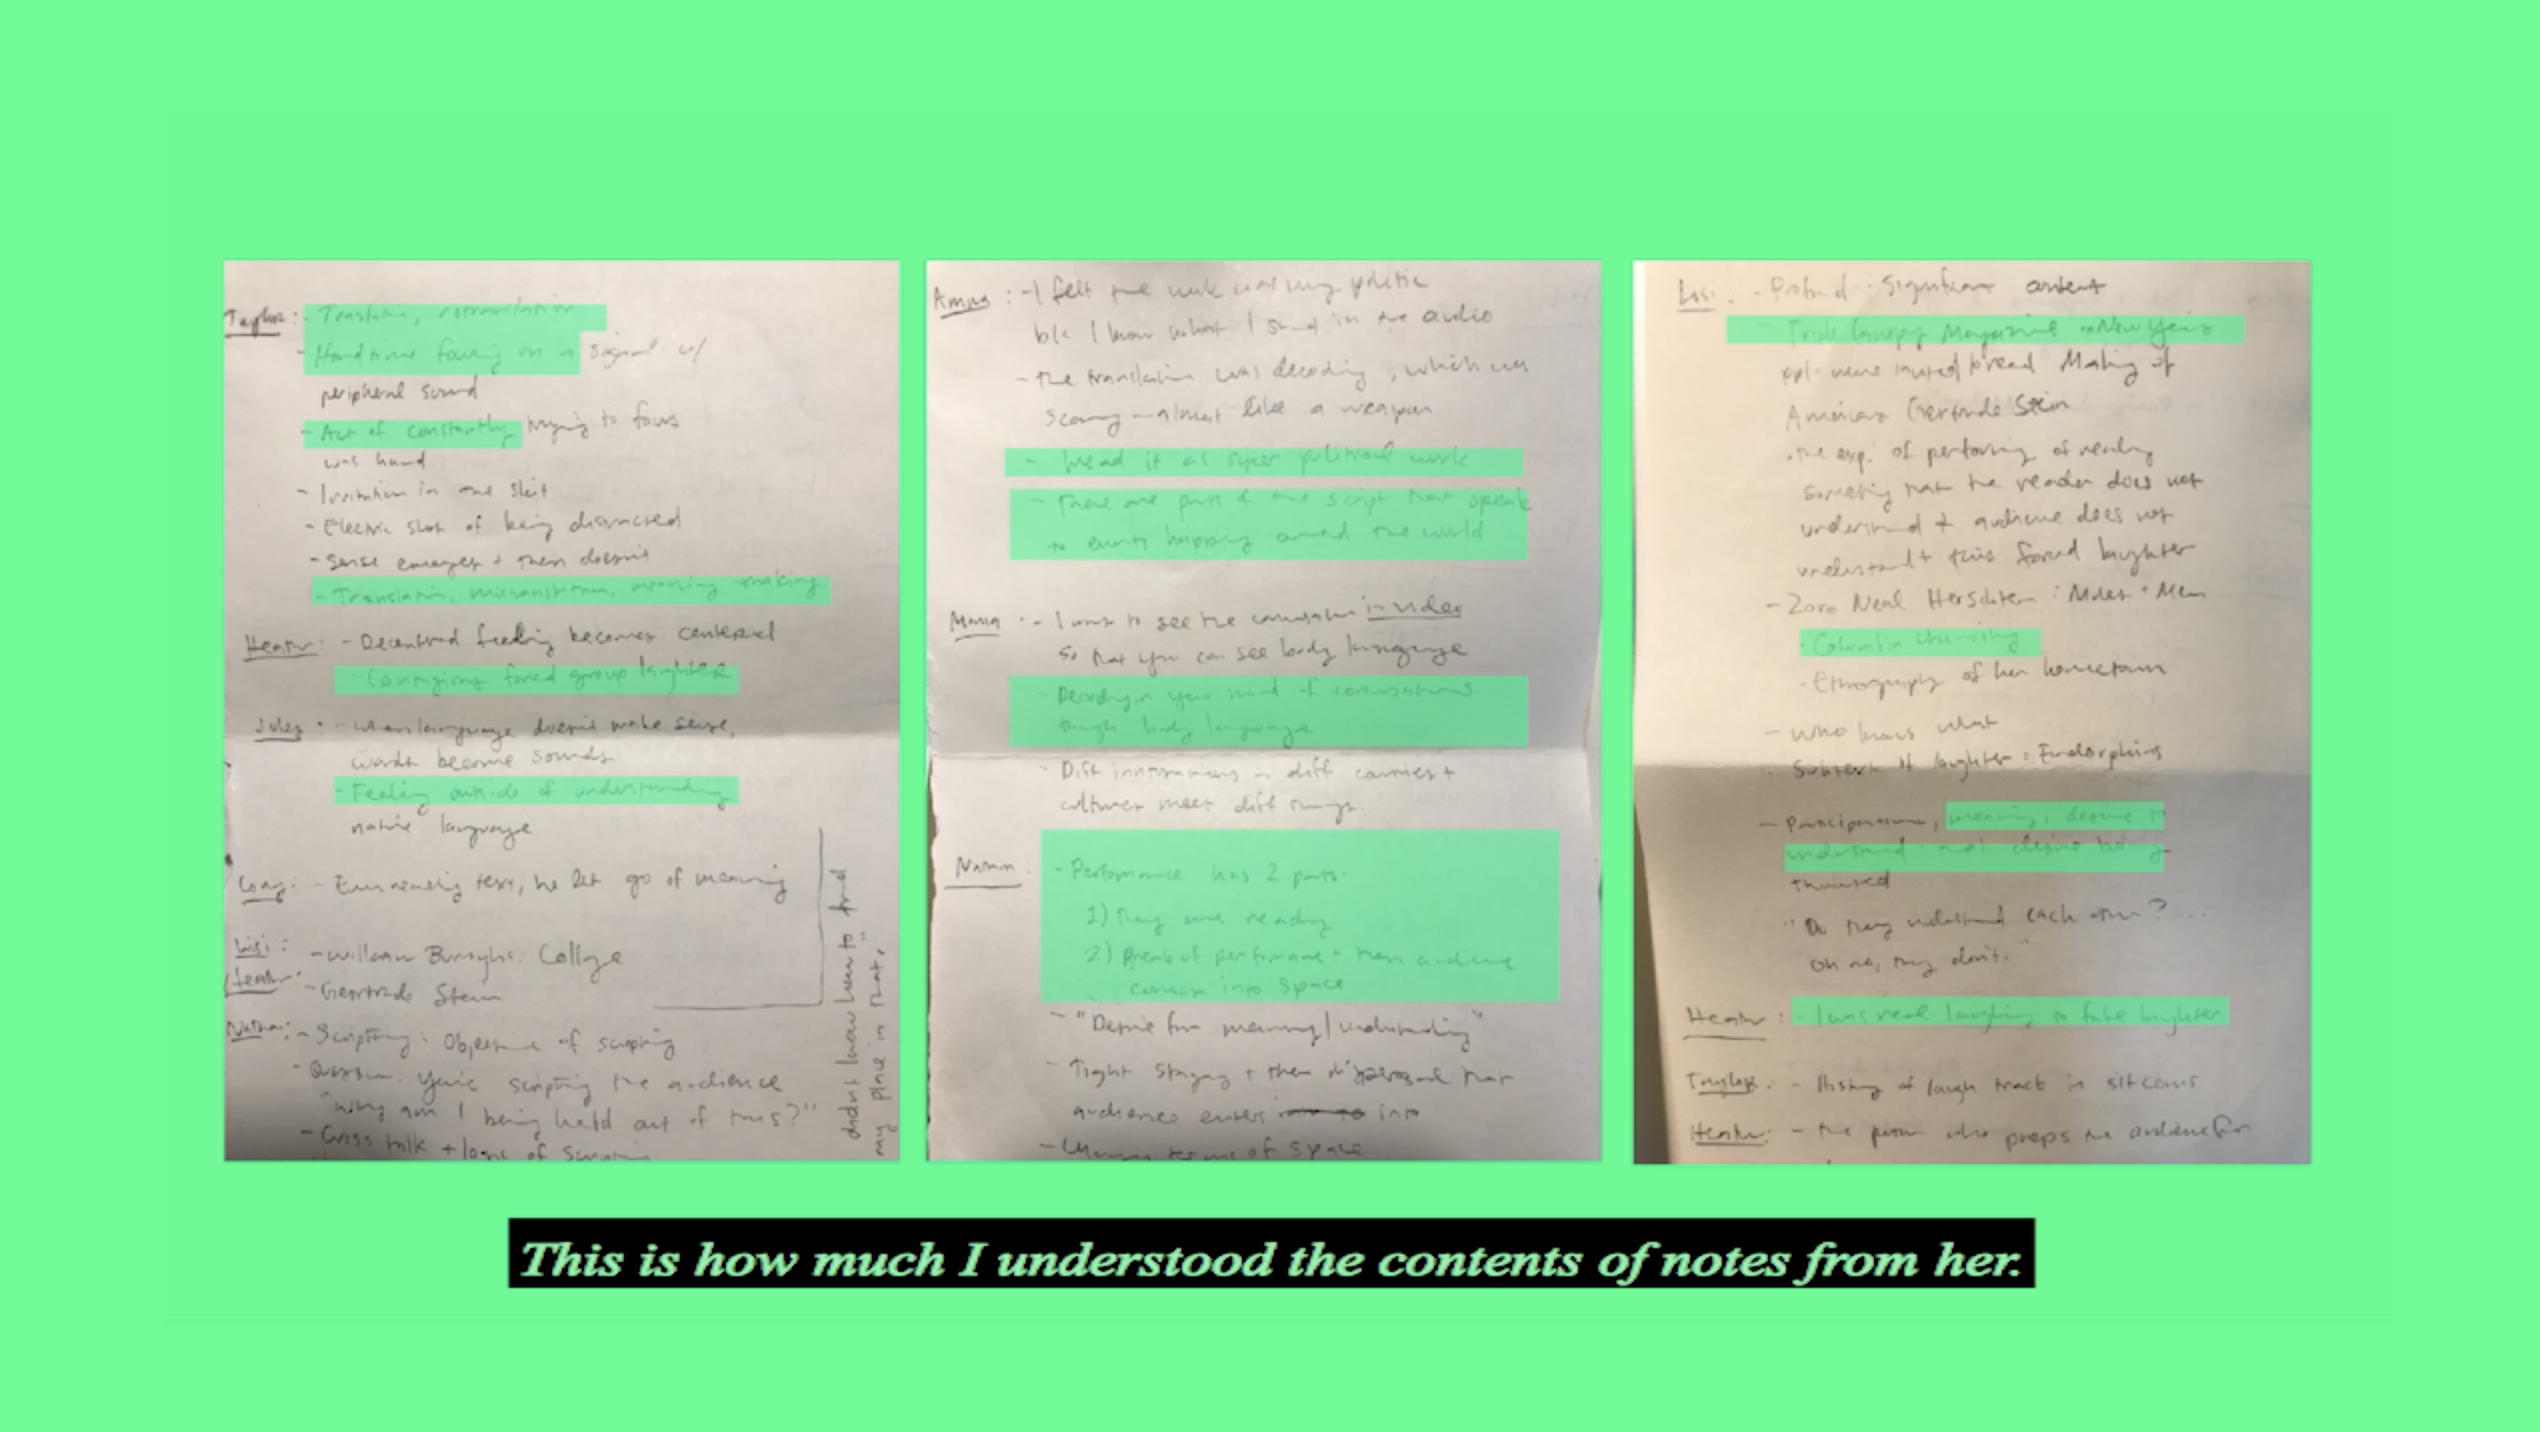 Taylor: - Translation, retranslation
- Hard time focusing on a signal w/
peripheral sound
- Act of constantly trying to focus
was hard
- Irritation in one
- Electric shot of being distracted
- Sense emerges + then doesn't
- Translation, mistranslation, meaning making
Heather: - Decentered feeling becomes centered
- Contagious forced group laughter
Jules: - when language doesn't make sense,
words become sounds
- Feeling outside of understanding
native language
- text, he let go of meaning
Lisi: - William Burroughs: College
Heather: - Gertrude Stein
- Scripting: Objective of scripting
- Question: you're scripting the audience
"why am I being held out of this?"
- Cross talk + logic of
didn't know how to find
my place in that,
- I felt the work was very politic
b/c I know what I said in the audio
- the translation was decoding, which was
scary - almost like a weapon
- read it as super political work
- There are parts of the script that speak
to events happening around the world
- I want to see the conversation in video
so that you can see body language
- Decoding in your mind of conversations
through body language
- Diff interactions in diff countries +
cultures meet diff things.
- Performance has 2 parts:
1) They are reading
2) Break of performance + then audience
comes into space
- "Desire for meaning/understanding"
- Tight staging + then dispersal that
audience enters into
- terms of space
Lisi: - Significant content
- Triple Canopy Magazine - New Years
read Making of
Americans Gertrude Stein
- the exp. of performing of reading
something that the reader does not
understand + audience does not
understand + this forced laughter
- Zora Neal : Mules + Men
- Columbia University
- Ethnography of her hometown
- Who knows what
- Subtext of laughter: Endorphins
- Participation, meaning, desire to
understand: that desire being
thwarted
"Do they understand each other? ...
Oh no, they don't."
Heather: - I was real laughing to fake laughter
Taylor: - History of laugh track in sitcoms
Heather: - the person who preps the audience for
This is how much I understood the contents of notes from her.